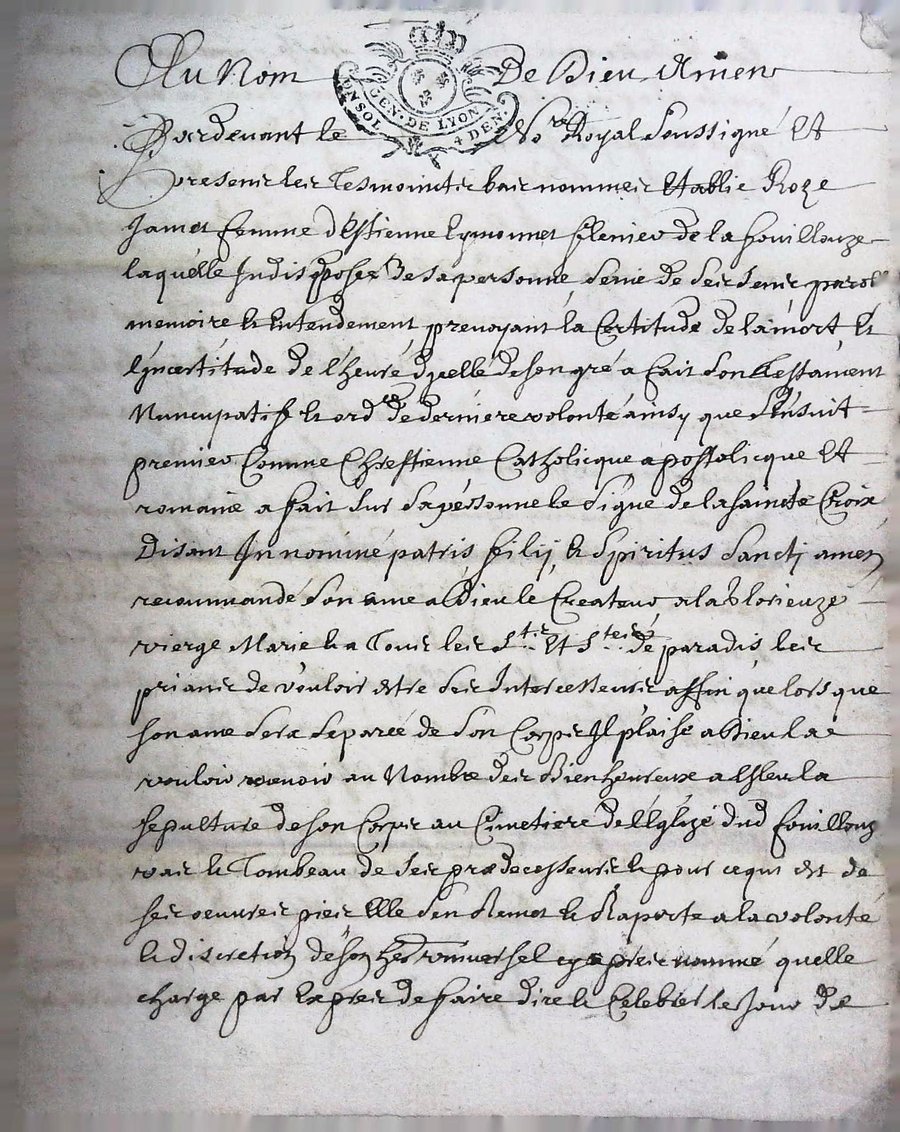 Au Nom De Dieu Amen
ONSO GEN · DE LYON 4 DEN
Pardevant le No.re Royal soussigné Et
presents les tesmoints bas nommes Establie Roze
Jamet femme d'Estienne Eymonnet de la fouillouze
laquelle Indisposée de sa personne saine de ses sens parolle
memoire et Entendement prevoyant la Certitude de la mort et
l'Incertitude de l'heure d'ycelle de son gré a fait son testament
Nuncupatif et ord.ce de derniere volonté ainsy que s'ensuit
premier Comme Chrestienne Catholicque apostolicque Et
romaine a fait sur sa personne le signe de la saincte Croix
Disant In nomine patris filij, et spiritus sancti amen
recommandé son ame a Dieu le Createur a la Glorieuze
vierge Marie et a tous les S.ts Et S.tes de paradis les
priant de vouloir estre ses Intercesseurs affin que lors que
son ame sera separée de son Corps Il plaise a Dieu la
vouloir recevoir au Nombre des Bienheureux a Esleu la
sepulture de son Corps au Cimetiere de l'Eglize dud fouillouz
et Tombeau de ses prædecesseurs et pour ce qui est de
ses oeuvres pies Elle s'en Remet et Raporte a la volonté
et discretion de son her universel cy apres nommé quelle
charge par Expres de faire dire et Celebrer le Jour de